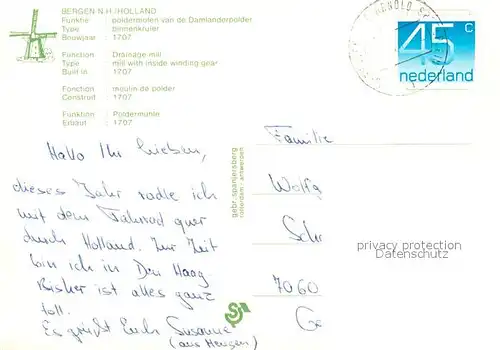 BERGEN N.H./HOLLAND
Funktie : poldermolen van de Damlanderpolder
Type : binnenkruier
Bouwjaar : 1707
Function : Drainage mill
Type : mill with inside winding gear
Built in : 1707
Fonction : moulin de polder
Construit : 1707
Funktion : Poldermühle
Erbaut : 1707
45 c
nederland
Hallo Ihr Lieben,
dieses Jahr radle ich
mit dem Fahrrad quer
durch Holland. Zur Zeit
bin ich in Den Haag.
Bisher ist alles ganz
toll.
Es grüßt Euch Susanne
(aus
gebr. spanjersberg
rotterdam / antwerpen
Familie
Wolfg
Sch
7060
privacy protection
Datenschutz